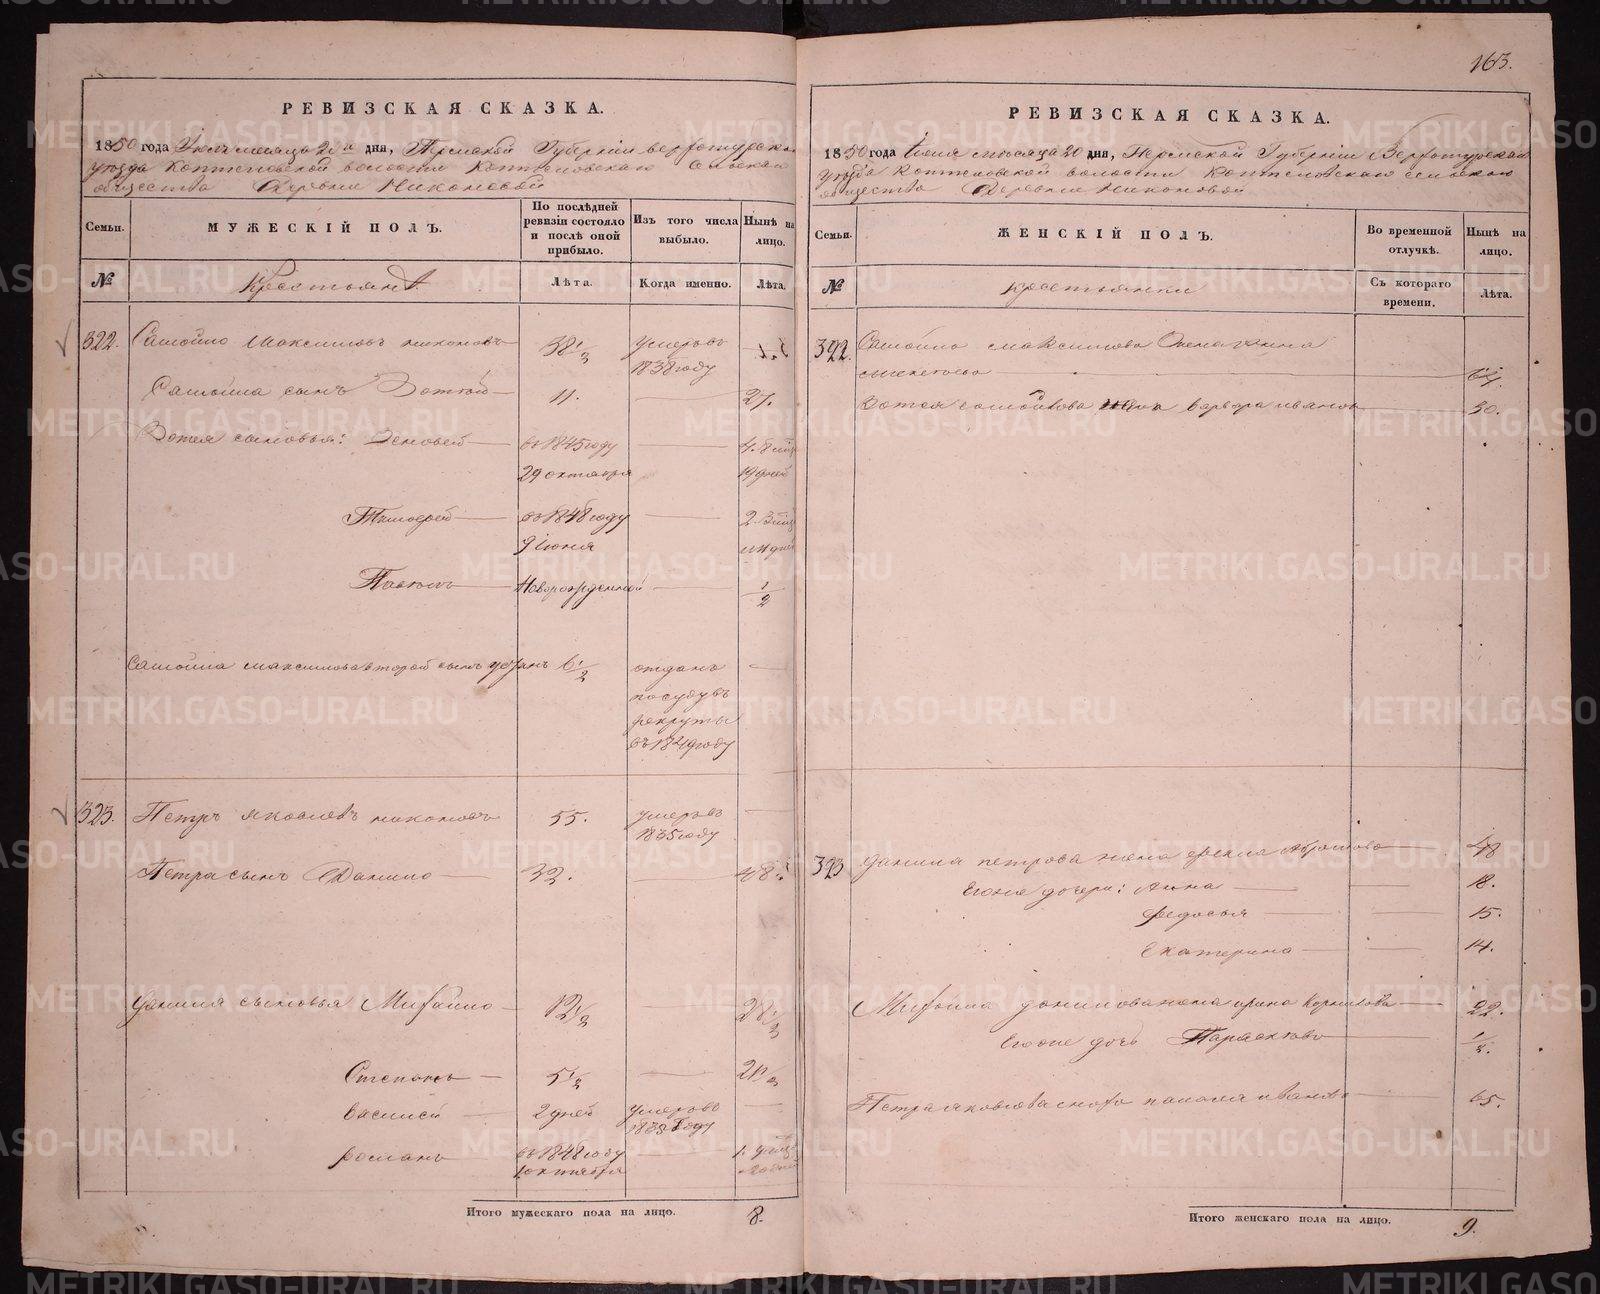 163.
РЕВИЗСКАЯ СКАЗКА.
1850 года Іюня мѣсяца 20 дня, Пермской Губерніи Верхотурскаго
уѣзда Коптеловской волости Коптеловскаго Сельскаго
общества Деревни Никоновой
Семьи.
МУЖЕСКІЙ ПОЛЪ.
По послѣдней ревизіи состояло и послѣ оной прибыло.
Изъ того числа выбыло.
Нынѣ на лицо.
№
Крестьянъ
Лѣта.
Когда именно.
Лѣта.
322. Самойло Максимовъ Никоновъ 38 1/3 умеръ въ
1838 году
Самойла сынъ Зотей 11. 27.
Зотея сыновья: Зеновей въ 1845 году 4. 8
29 октября 19 дней
Тимофей въ 1848 году 2.
9 Іюня 11 дней
Павелъ Новорожденной 1/2
Самойла Максимова второй сынъ 6 1/2 отданъ
въ
рекруты
въ 1849 году
323. Петръ Яковлевъ Никоновъ 55. умеръ въ
1835 году
Петра сынъ Данило 32. 48
Данила сыновья Михайло 12 1/2 28 1/2
Степанъ 5 1/2 21 1/2
Василей 2 дней умеръ въ
году
Романъ въ 1848 году 1.
октября
Итого мужескаго пола на лицо. 8.
РЕВИЗСКАЯ СКАЗКА.
1850 года Іюня мѣсяца 20 дня, Пермской Губерніи Верхотурскаго
уѣзда Коптеловской волости Коптеловскаго сельскаго
общества Деревни Никоновой
Семьи.
ЖЕНСКІЙ ПОЛЪ.
Во временной отлучкѣ.
Нынѣ на лицо.
№
крестьянки
Съ котораго времени.
Лѣта.
392. Самойла Максимова жена
Зотея Самойлова жена Варвара Иванова 30.
323 Данила Петрова жена 48
Егоже дочери: Анна 18.
Федосья 15.
Екатерина 14.
Михайла Данилова жена Ирина Корнилова 22.
Егоже дочь Парасковья 1/2.
Петра Яковлева сноха Иванова 65.
Итого женскаго пола на лицо. 9.
METRIKI.GASO-URAL.RU